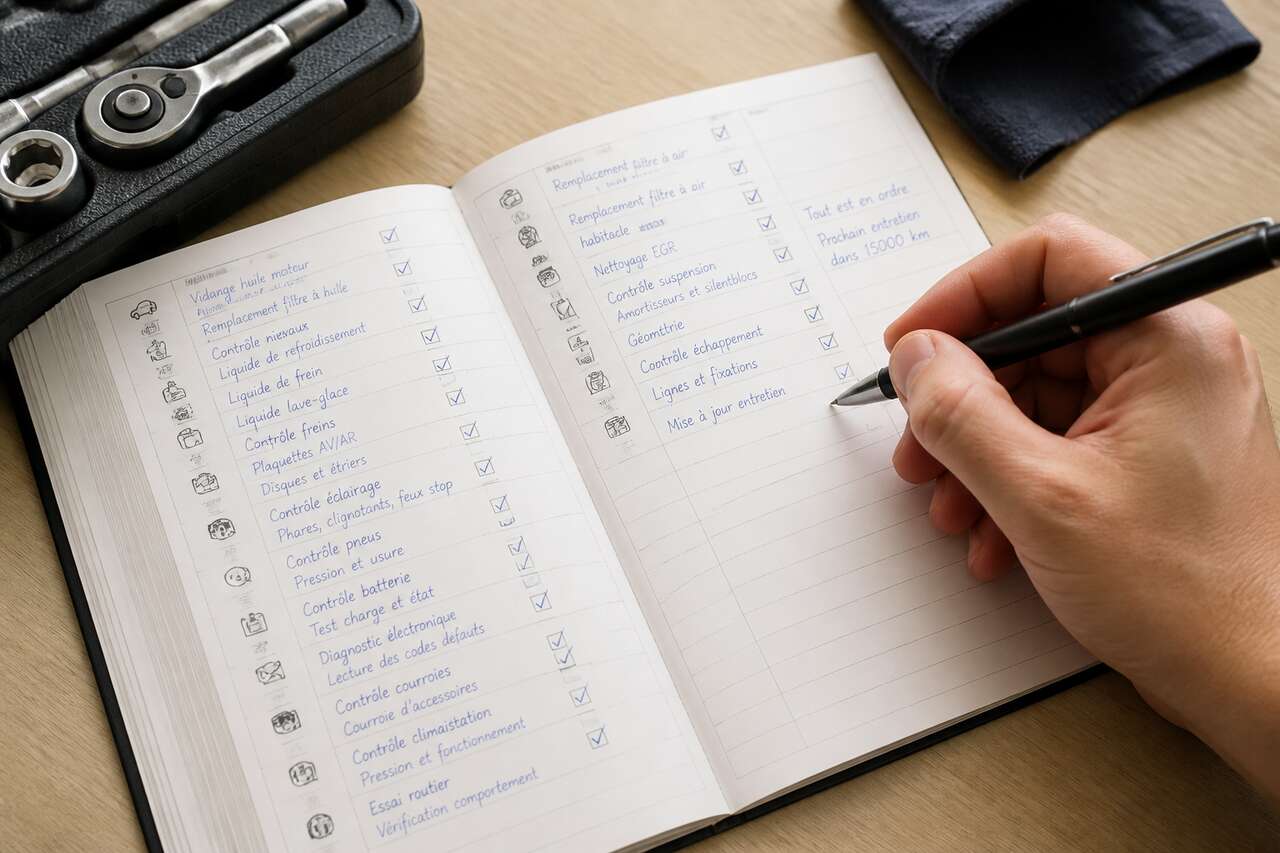 Vidange huile motour
Remplacement filtre à huile
Contrôle niveaux
Liquide de refroidissement
Liquide de frein
Liquide lave-glace
Contrôle freins
Plaquettes AV/AR
Disques et étriers
Contrôle éclairage
Phares, clignotants, feux stop
Contrôle pneus
Pression et usure
Contrôle batterie
Test charge et état
Diagnostic électronique
Lecture des codes défauts
Contrôle courroies
Courroie d'accessoires
Contrôle climaistation
Pression et fonctionnement
Essai routier
Vérification comportement
Remplacement filtre à air
Remplacement filtre à air
habitacle
Nettoyage EGR
Contrôle suspension
Amortisseurs et silentblocs
Géomttrie
Cootrôle échappement
Lignes et fixations
Mise à jour entretien
Tout est en ordre
Prochain entretien
dans 15000 km